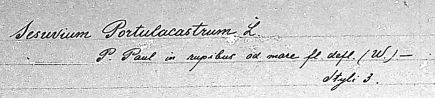 Sesuvium Portulacastrum L.
P. Paul in rupibus ad mare fl. defl. (W.) —
Styli 3.